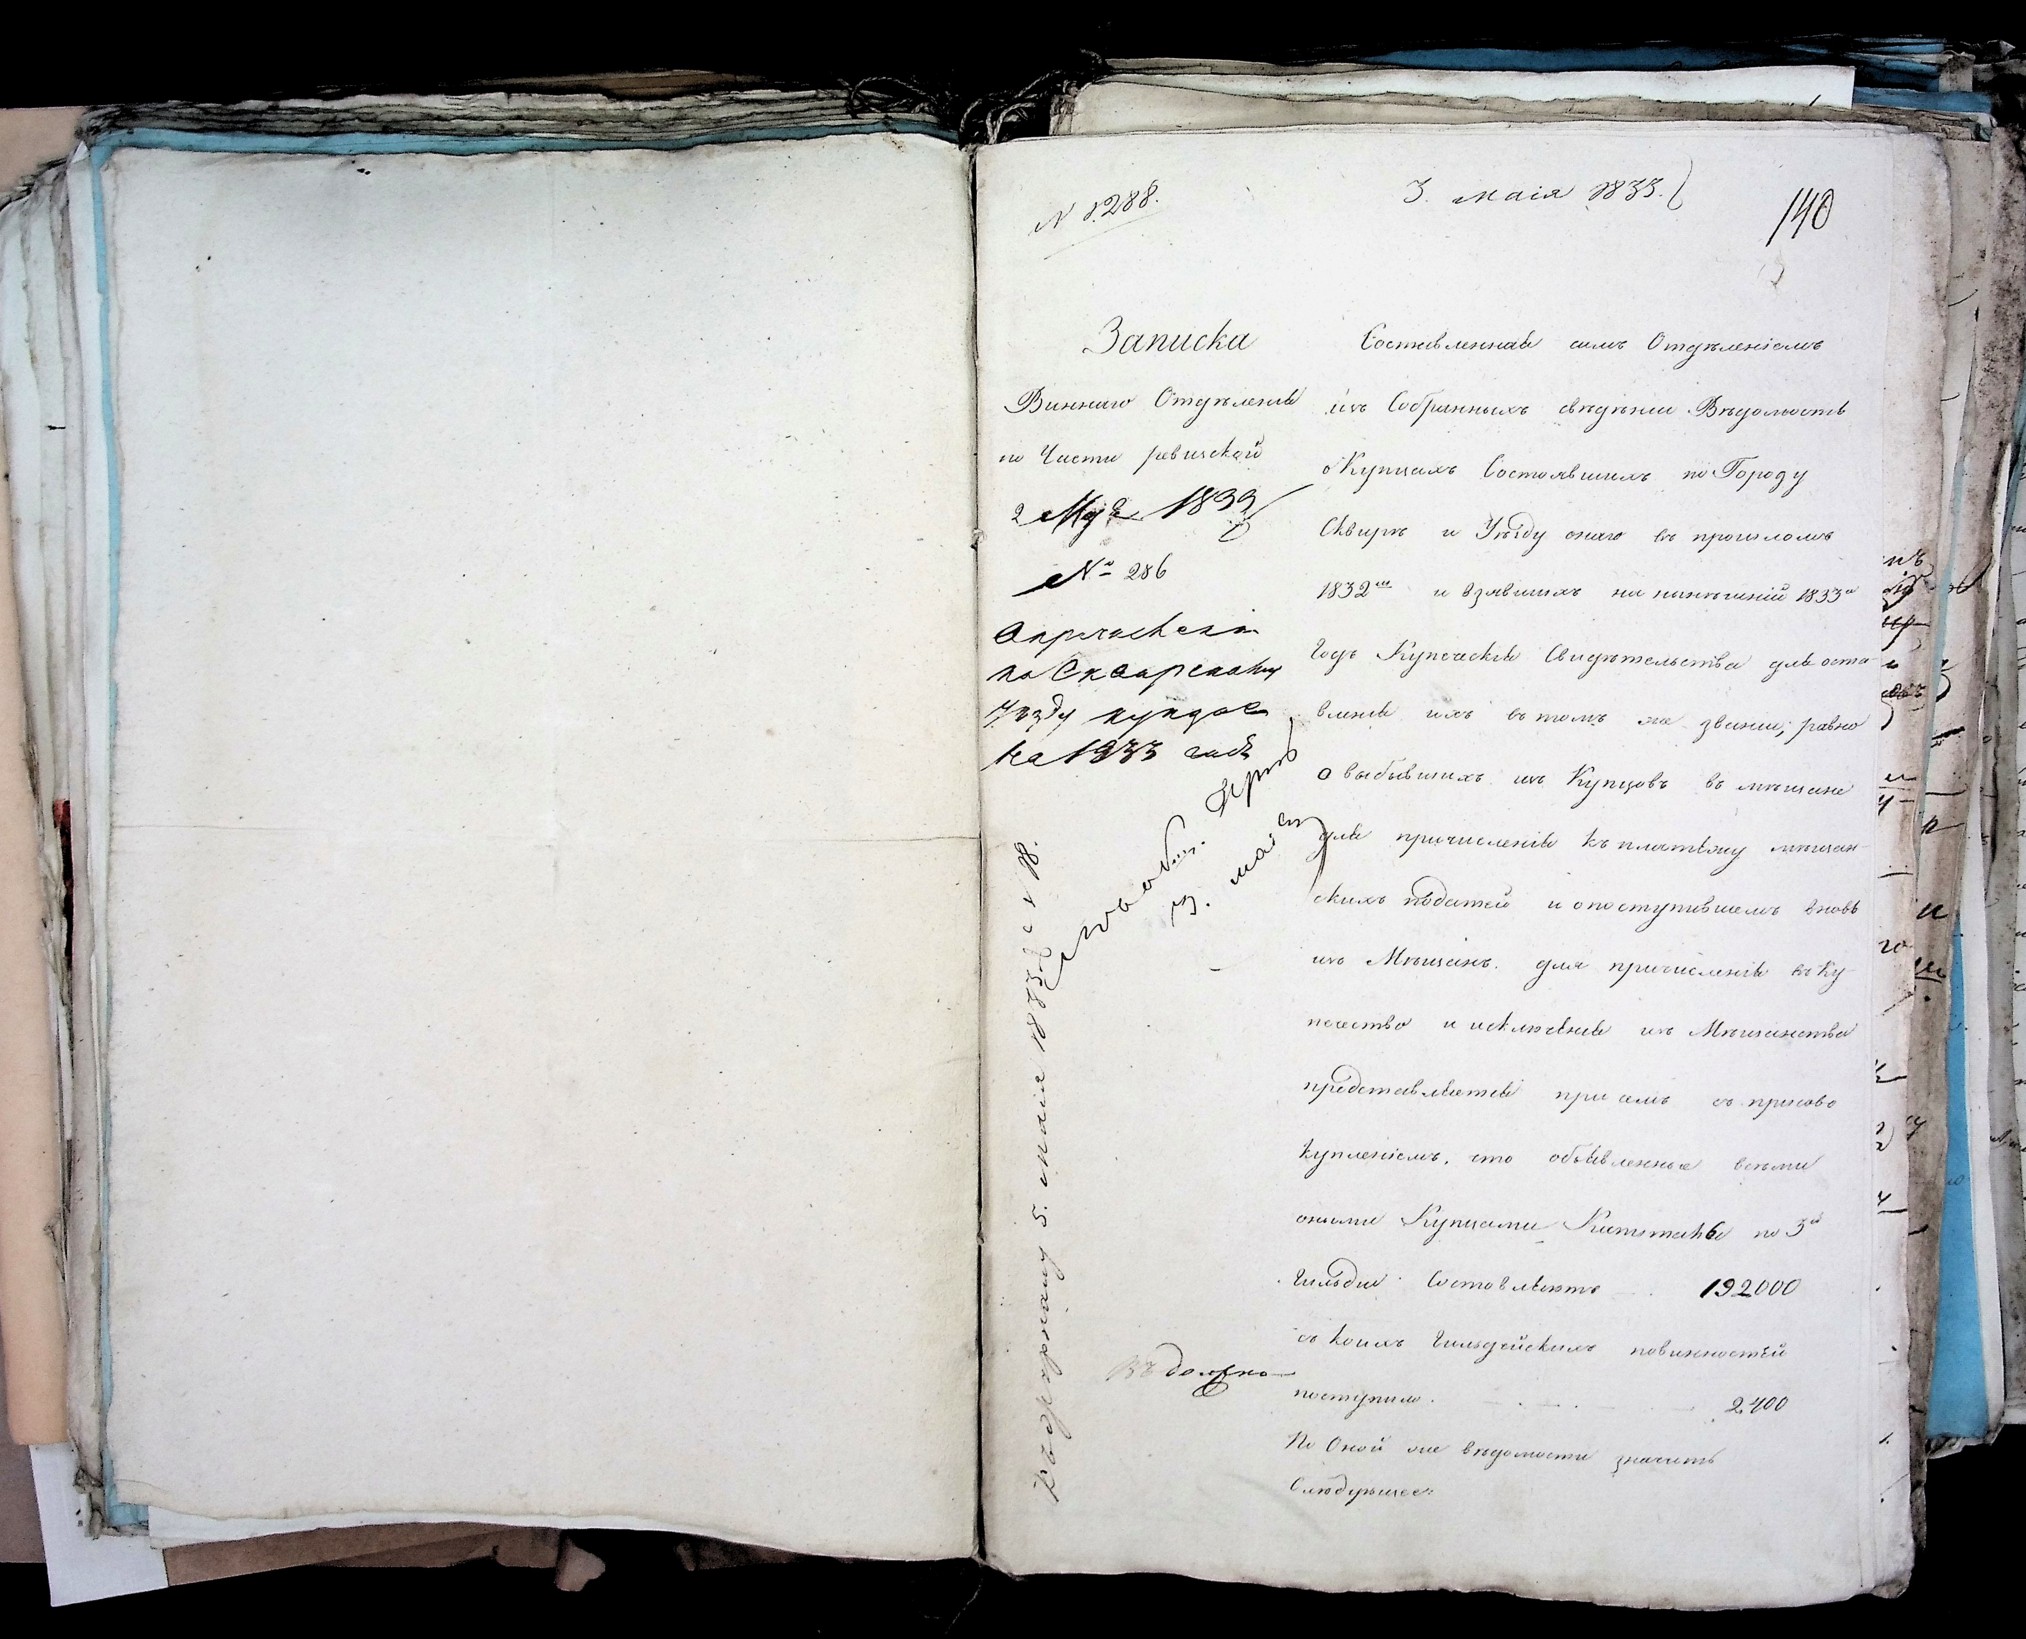 N 1288.
3. маія 1833.
140
Записка
Виннаго Отдѣленія
по Части ревизской
2 Мая 1833
№ 286
о
по Сквирскому
Уѣзду купцах
на 1833 годъ
13. маія
5. маія 1833
Вѣдомо
Составленная симъ Отдѣленіемъ
изъ Собранныхъ свѣдѣніи Вѣдомость
о Купцахъ Состоявшихъ по Городу
Сквирѣ и Уѣзду онаго въ прошломъ
1832м и взявшихъ на нынѣшній 1833й
Годъ Купеческія Свидѣтельства для оста-
вленія ихъ въ томъ же званіи, равно
о выбывшихъ изъ Купцовъ въ мѣщане
для причисленія къ платежу мѣщан-
скихъ податей и о поступившемъ вновь
изъ Мѣщанъ для причисленія въ Ку-
печество и исключенія изъ Мѣщанства
представляется при семъ съ присово
купленіемъ, что объявленные всѣми
оными Купцами Капиталы по 3й
Гильдіи Составляютъ 192000
съ коихъ Гильдейскихъ повинностей
поступило 2400
По Оной же вѣдомости значитъ
Слюдующее: